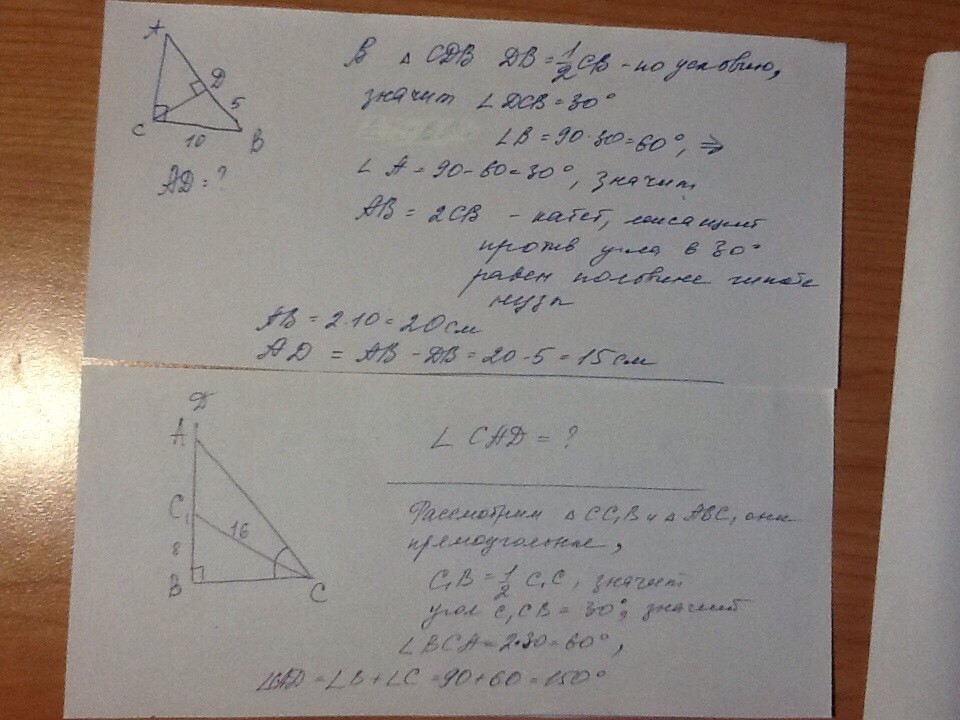 A
D
5
C
10
B
AD = ?
В △ CDB DB = 1/2 CB - по условию,
значит ∠ DCB = 30°
∠B = 90-30=60°, ⇒
∠ A = 90-60=30°, значит
AB = 2CB - катет, лежащий
против угла в 30°
равен половине гипоте
нузы
AB = 2·10 = 20см
AD = AB - DB = 20-5 = 15см
D
A
C₁
16
8
B
C
∠ CAD = ?
Рассмотрим △ CC₁B и △ ABC, они
прямоугольные,
C₁B = 1/2 C₁C, значит
угол C₁CB = 30°, значит
∠BCA = 2·30=60°,
∠CAD = ∠B + ∠C = 90+60=150°